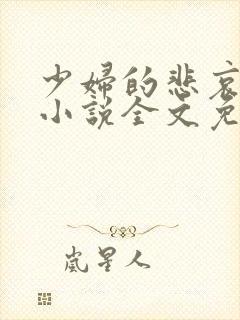 少婦的悲哀
小說全文免
嵐星人